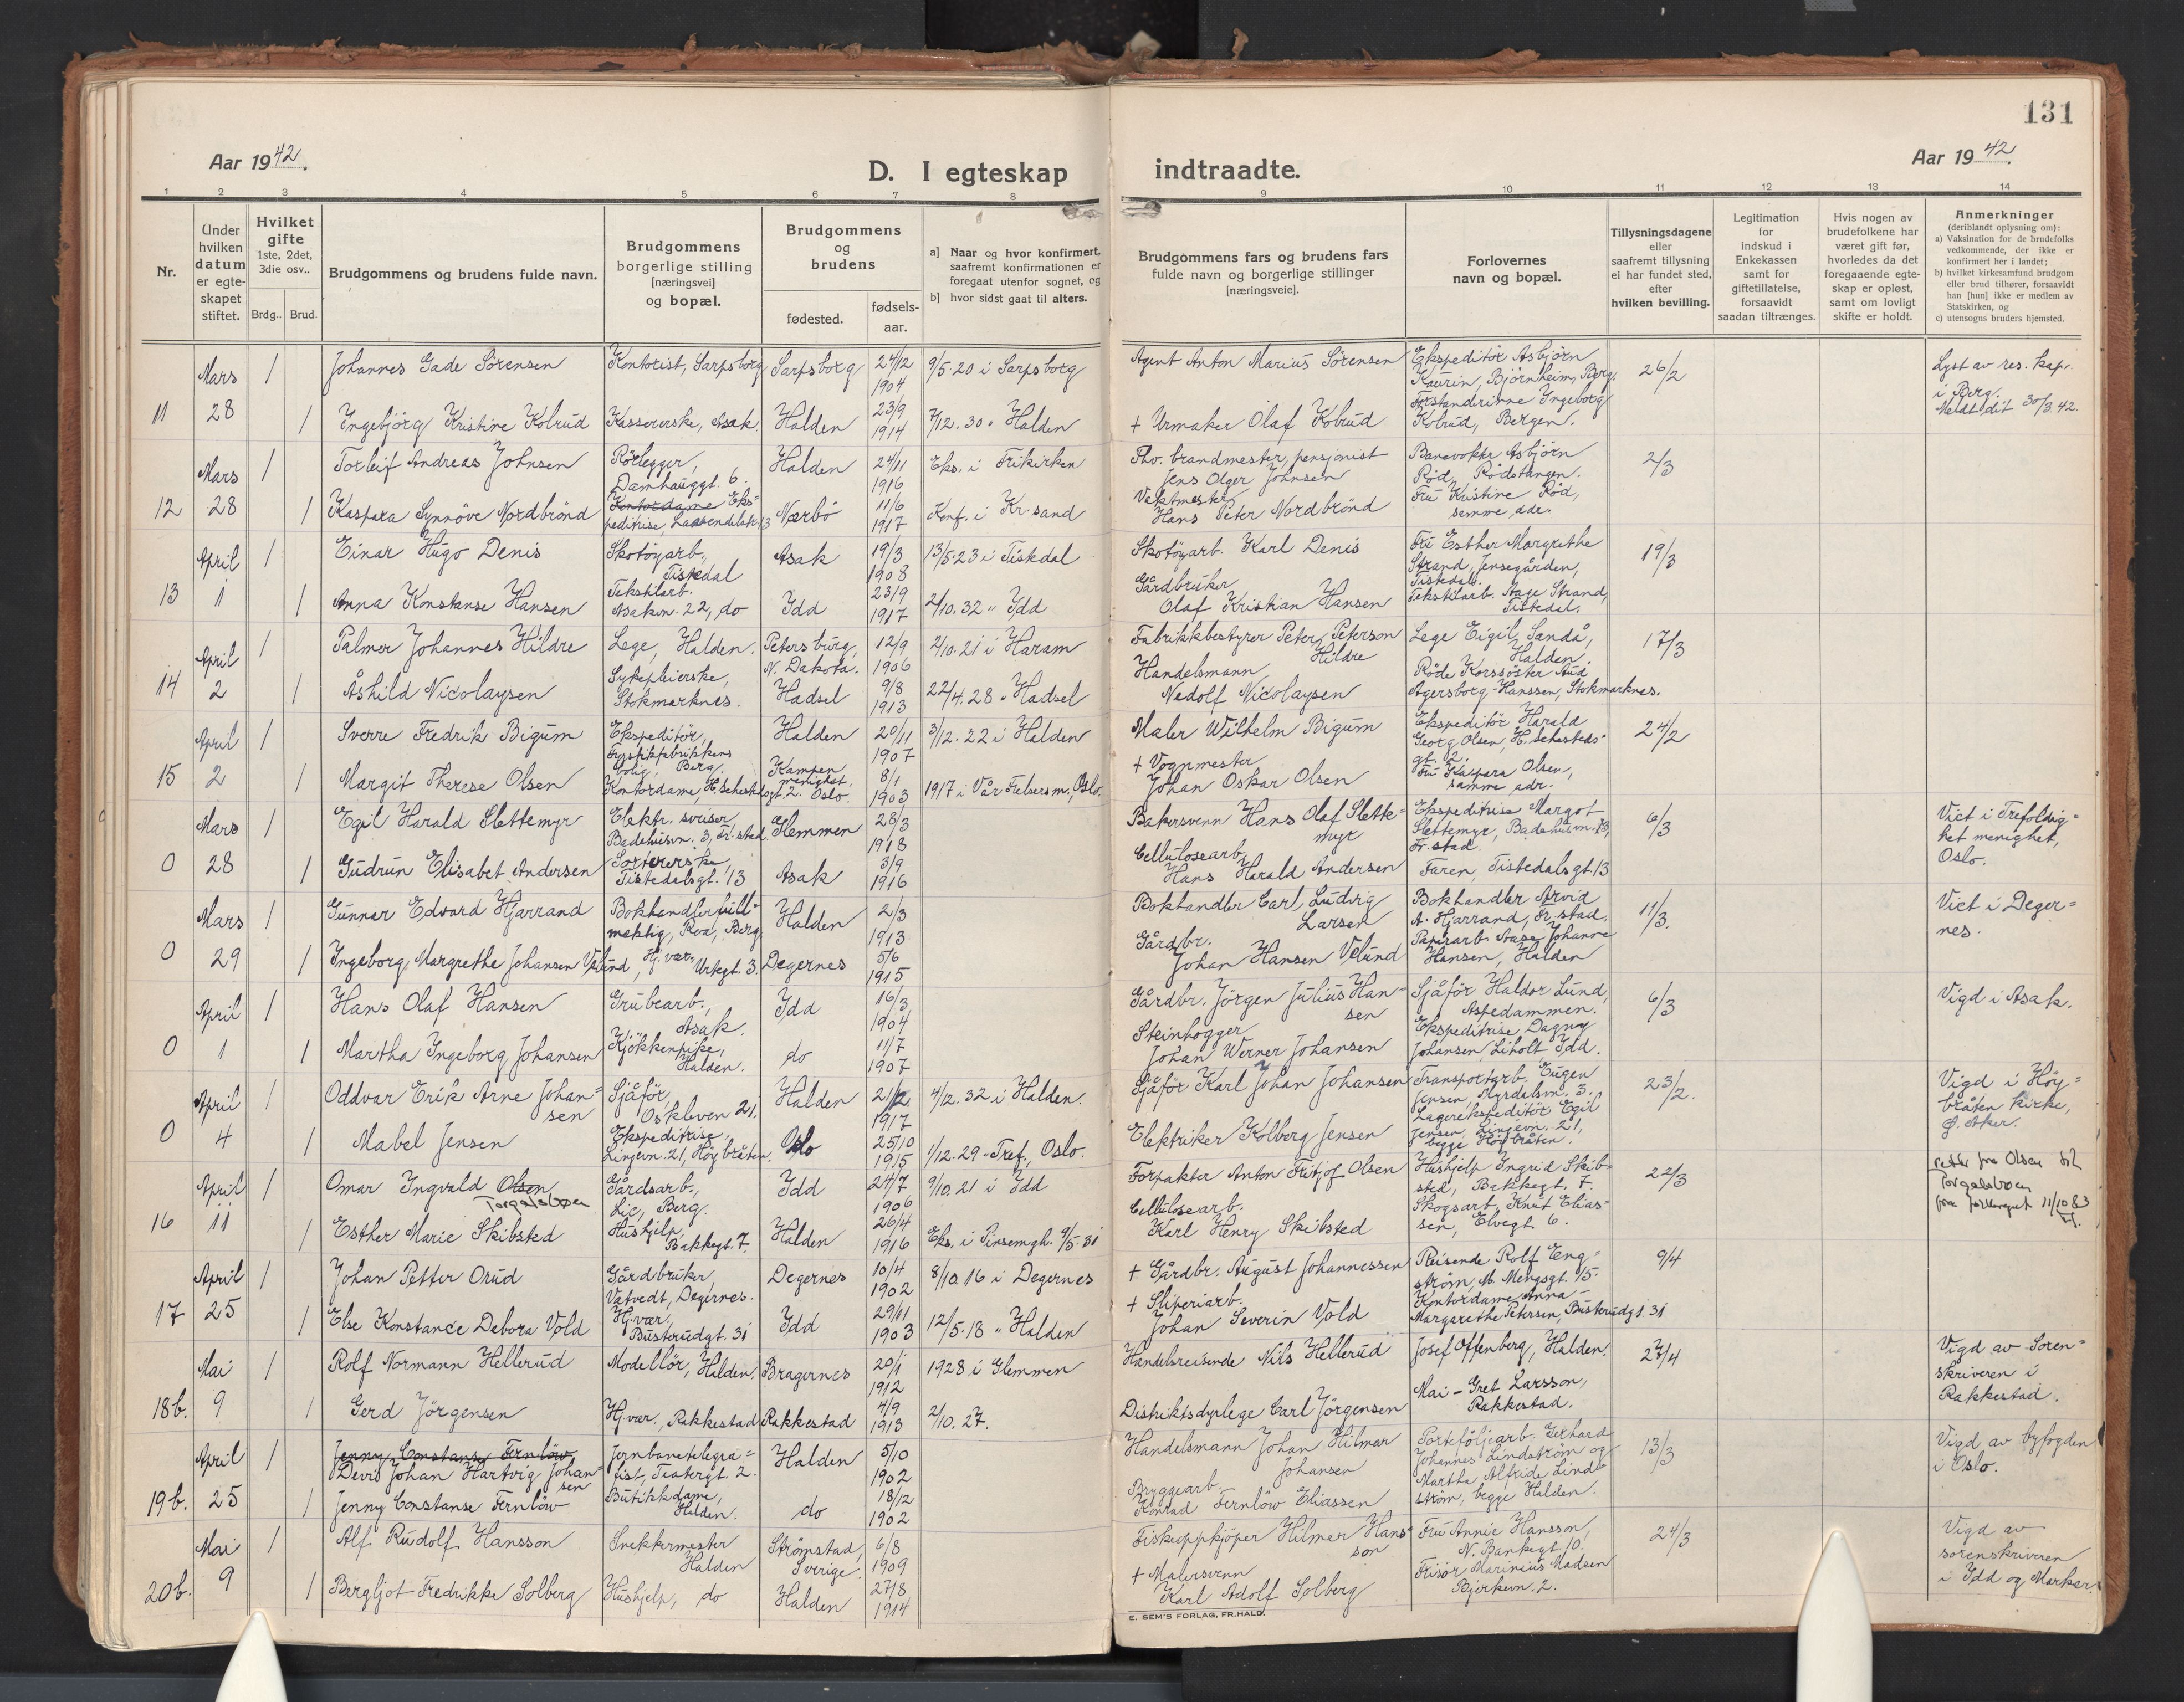 131
Aar 1942.
D. I egteskap
indtraadte.
Aar 1942.
1 2 3 4 5 6 7 8 9 10 11 12 13 14
Nr.
Under hvilken datum er egte-skapet stiftet.
Hvilket gifte 1ste, 2det, 3die osv..
Brdg.. Brud.
Brudgommens og brudens fulde navn.
Brudgommens borgerlige stilling [næringsvei] og bopæl.
Brudgommens og brudens
fødested.
fødsels-aar.
a] Naar og hvor konfirmert, saafremt konfirmationen er foregaat utenfor sognet, og
b] hvor sidst gaat til alters.
Brudgommens fars og brudens fars fulde navn og borgerlige stillinger [næringsveie].
Forlovernes navn og bopæl.
Tillysningsdagene eller saafremt tillysning ei har fundet sted, efter hvilken bevilling.
Legitimation for indskud i Enkekassen samt for giftetillatelse, forsaavidt saadan tiltrænges.
Hvis nogen av brudefolkene har været gift før, hvorledes da det foregaaende egte-skap er opløst, samt om lovligt skifte er holdt.
Anmerkninger
(deriblandt oplysning om):
a) Vaksination for de brudefolks vedkommende, der ikke er konfirmert her i landet;
b) hvilket kirkesamfund brudgom eller brud tilhører, forsaavidt han [hun] ikke er medlem av Statskirken, og
c) utensogns bruders hjemsted.
Mars 1 Johannes Gade Sörensen Kontorist, Sarpsborg Sarpsborg 24/12 1904 9/5.20 i Sarpsborg Agent Anton Marius Sörensen Ekspeditör Asbjörn Kaurin, Björnheim, Berg. 26/2 Lyst av res. kap. i Berg. Meldt dit 30/3.42.
11 28 1 Ingebjörg Kristine Kolrud Kassererske, Asak. Halden 23/9 1914 7/12.30 " Halden + Urmaker Olaf Kolrud Forstanderinne Ingeborg Kolrud, Bergen.
Mars 1 Torleif Andreas Johnsen Rörlegger, Damhauggt. 6. Halden 24/11 1916 Eks. i Frikirken Fhv. brandmester, pensjonist Jens Olger Johnsen Banevokter Asbjörn Röd, Rödstangen. 2/3
12 28 1 Kaspara Synnöve Nordbrönd Kontordame Eks=peditrise, Nærbö 11/6 1917 Konf. i Kr.sand Vaktmester Hans Peter Nordbrönd Fru Kristine Röd, samme adr.
April 1 Einar Hugo Denis Skotöyarb., Tistedal Asak 19/3 1908 13/5.23 i Tistedal Skotöyarb. Karl Denis Fru Esther Margrethe Strand, Jensegården, Tistedal. 19/3
13 1 1 Anna Konstanse Hansen Tekstilarb. Asakvn. 22, do Idd 23/9 1917 2/10.32 " Idd Gårdbruker Olaf Kristian Hansen Tekstilarb. Aage Strand, Tistedal.
April 1 Palmer Johannes Hildre Lege, Halden. Petersburg, N. Dakota. 12/9 1906 2/10.21 i Haram Fabrikkbestyrer Peter Peterson Hildre Lege Eigil Sandå, Halden. 17/3
14 2 1 Åshild Nicolaysen Sykepleierske, Stokmarknes. Hadsel 9/8 1913 22/4.28 " Hadsel Handelsmann Nedolf Nicolaysen Röde Korssöster Aud Agersborg-Hanssen, Stokmarknes.
April 1 Sverre Fredrik Bigum Ekspeditör, Fyrstikkfabrikkens bolig, Berg. Halden 20/11 1907 3/12.22 i Halden Maler Wilhelm Bigum Ekspeditör Harald Georg Olsen, H. Sehesteds=gt. 2. 24/2
15 2 1 Margit Therese Olsen Kontordame, H. Sehestedsgt. 2. Kampen menighet, Oslo. 8/1 1903 1917 i Vår Frelsers m., Oslo. + Vognmester Johan Oskar Olsen Fru Kaspara Olsen, samme adr.
Mars 1 Egil Harald Slettemyr Elektr. sveiser, Badehusvn. 3, Fr.stad. Glemmen 28/3 1918 Bakersvenn Hans Olaf Slette=myr Ekspeditrise Margot Slettemyr, Badehusvn. 3, Fr.stad. 6/3 Viet i Trefoldig=het menighet, Oslo.
0 28 1 Gudrun Elisabet Andersen Sorterer­ske, Tistedalsgt. 13 Asak 3/9 1916 Cellulosearb. Hans Harald Andersen Faren, Tistedalsgt. 13
Mars 1 Gunnar Edvard Hjarrand Bokhandlerfull=mektig, Roa, Berg Halden 2/3 1913 Bokhandler Carl Ludvig Larsen Bokhandler Arvid A. Hjarrand, Fr.stad. 11/3. Viet i Deger=nes.
0 29 1 Ingeborg Margrethe Johansen Velund, Hj.vær. Urtegt. 3. Degernes 5/6 1915 Gårdbr. Johan Hansen Velund Papirarb. Aase Johanne Hansen, Halden
April 1 Hans Olaf Hansen Grubearb., Asak. Idd 16/3 1904 Gårdbr. Jörgen Julius Han=sen Sjåför Haldor Lund, Aspedammen. 6/3 Vigd i Asak.
0 1 1 Martha Ingeborg Johansen Kjökkenpike, Halden. do 11/7 1907 Steinhogger Johan Werner Johansen Ekspeditrise Dagny Johansen, Liholt, Idd.
April 1 Oddvar Erik Arne Johan=sen Sjåför, Oskleven 21. Halden 21/12 1917 4/12.32 i Halden. Sjåför Karl Johan Johansen Transportarb. Eugen Jensen, Myrdalsvn. 3. 23/2. Vigd i Höy=bråten kirke, Ö. Aker.
0 4 1 Mabel Jensen Ekspeditrise, Linjevn. 21, Höybråten. Oslo 25/10 1915 1/12.29 " Tref., Oslo. Elektriker Kolberg Jensen Lagerekspeditör Egil Jensen, Linjevn. 21, begge Höybråten.
April 1 Omar Ingvald Olsen Torgalsböen Gårdsarb., Lie, Berg. Idd 24/7 1906 9/10.21 i Idd Forpakter Anton Fritjof Olsen Hushjelp Ingrid Skib=sted, Bakkegt. 7. 22/3 rettet fra Olsen til Torgalsböen 11/10 83
16 11 1 Esther Marie Skibsted Hushjelp, Bakkegt. 7. Halden 26/4 1916 Eks. i Pinsemgh. 9/5.31 Cellulosearb. Karl Henry Skibsted Skogsarb. Knut Elias=sen, Elvegt. 6.
April 1 Johan Petter Orud Gårdbruker, Vatvedt, Degernes. Degernes 10/4 1902 8/10.16 i Degernes + Gårdbr. August Johannessen Reisende Rolf Eng=ström, M. Mengsgt. 15. 9/4
17 25 1 Else Konstance Debora Vold Hj.vær, Busterudgt. 31 Idd 29/11 1903 12/5.18 " Halden + Sliperiarb. Johan Severin Vold Kontordame Anna-Margarethe Petersen, Busterudgt. 31
Mai 1 Rolf Normann Hellerud Modellör, Halden. Bragernes 20/1 1912 1928 i Glemmen Handelsreisende Nils Hellerud Josef Offenberg, Halden. 27/4 Vigd av Soren=skriveren i Rakkestad.
18b. 9 1 Gerd Jörgensen Hj.vær., Rakkestad Rakkestad 4/9 1913 2/10.27. Distriktsdyrlege Carl Jörgensen Mai-Gret Larsson, Rakkestad.
April 1 Jenny Constanse Fernlöw Johan Hartvig Johan=sen Jernbanetelegra=fist, Teatergt. 2. Halden 5/10 1902 Handelsmann Johan Hilmar Johansen Porteföljearb. Gerhard Johannes Lindström og 13/3 Vigd av byfogden i Oslo.
19b. 25 1 Jenny Constanse Fernlöw Butikkdame, Halden. do 18/12 1902 Bryggearb. Konrad Fernlöw Eliassen Martha Alfride Lind=ström, begge Halden.
Mai 1 Alf Rudolf Hansson Snekkermester Halden Strömstad, Sverige. 6/8 1909 Fiskeoppkjöper Hilmer Hans=son Fru Annie Hansson, N. Bankegt. 10. 24/3 Vigd av sorenskriveren i Idd og Marker.
20b. 9 1 Bergljot Fredrikke Solberg Hushjelp, do Halden 27/8 1914 + Malersvenn Karl Adolf Solberg Frisör Marinius Madsen Bjerkevn. 2.
E. SEM'S FORLAG, FR.HALD.